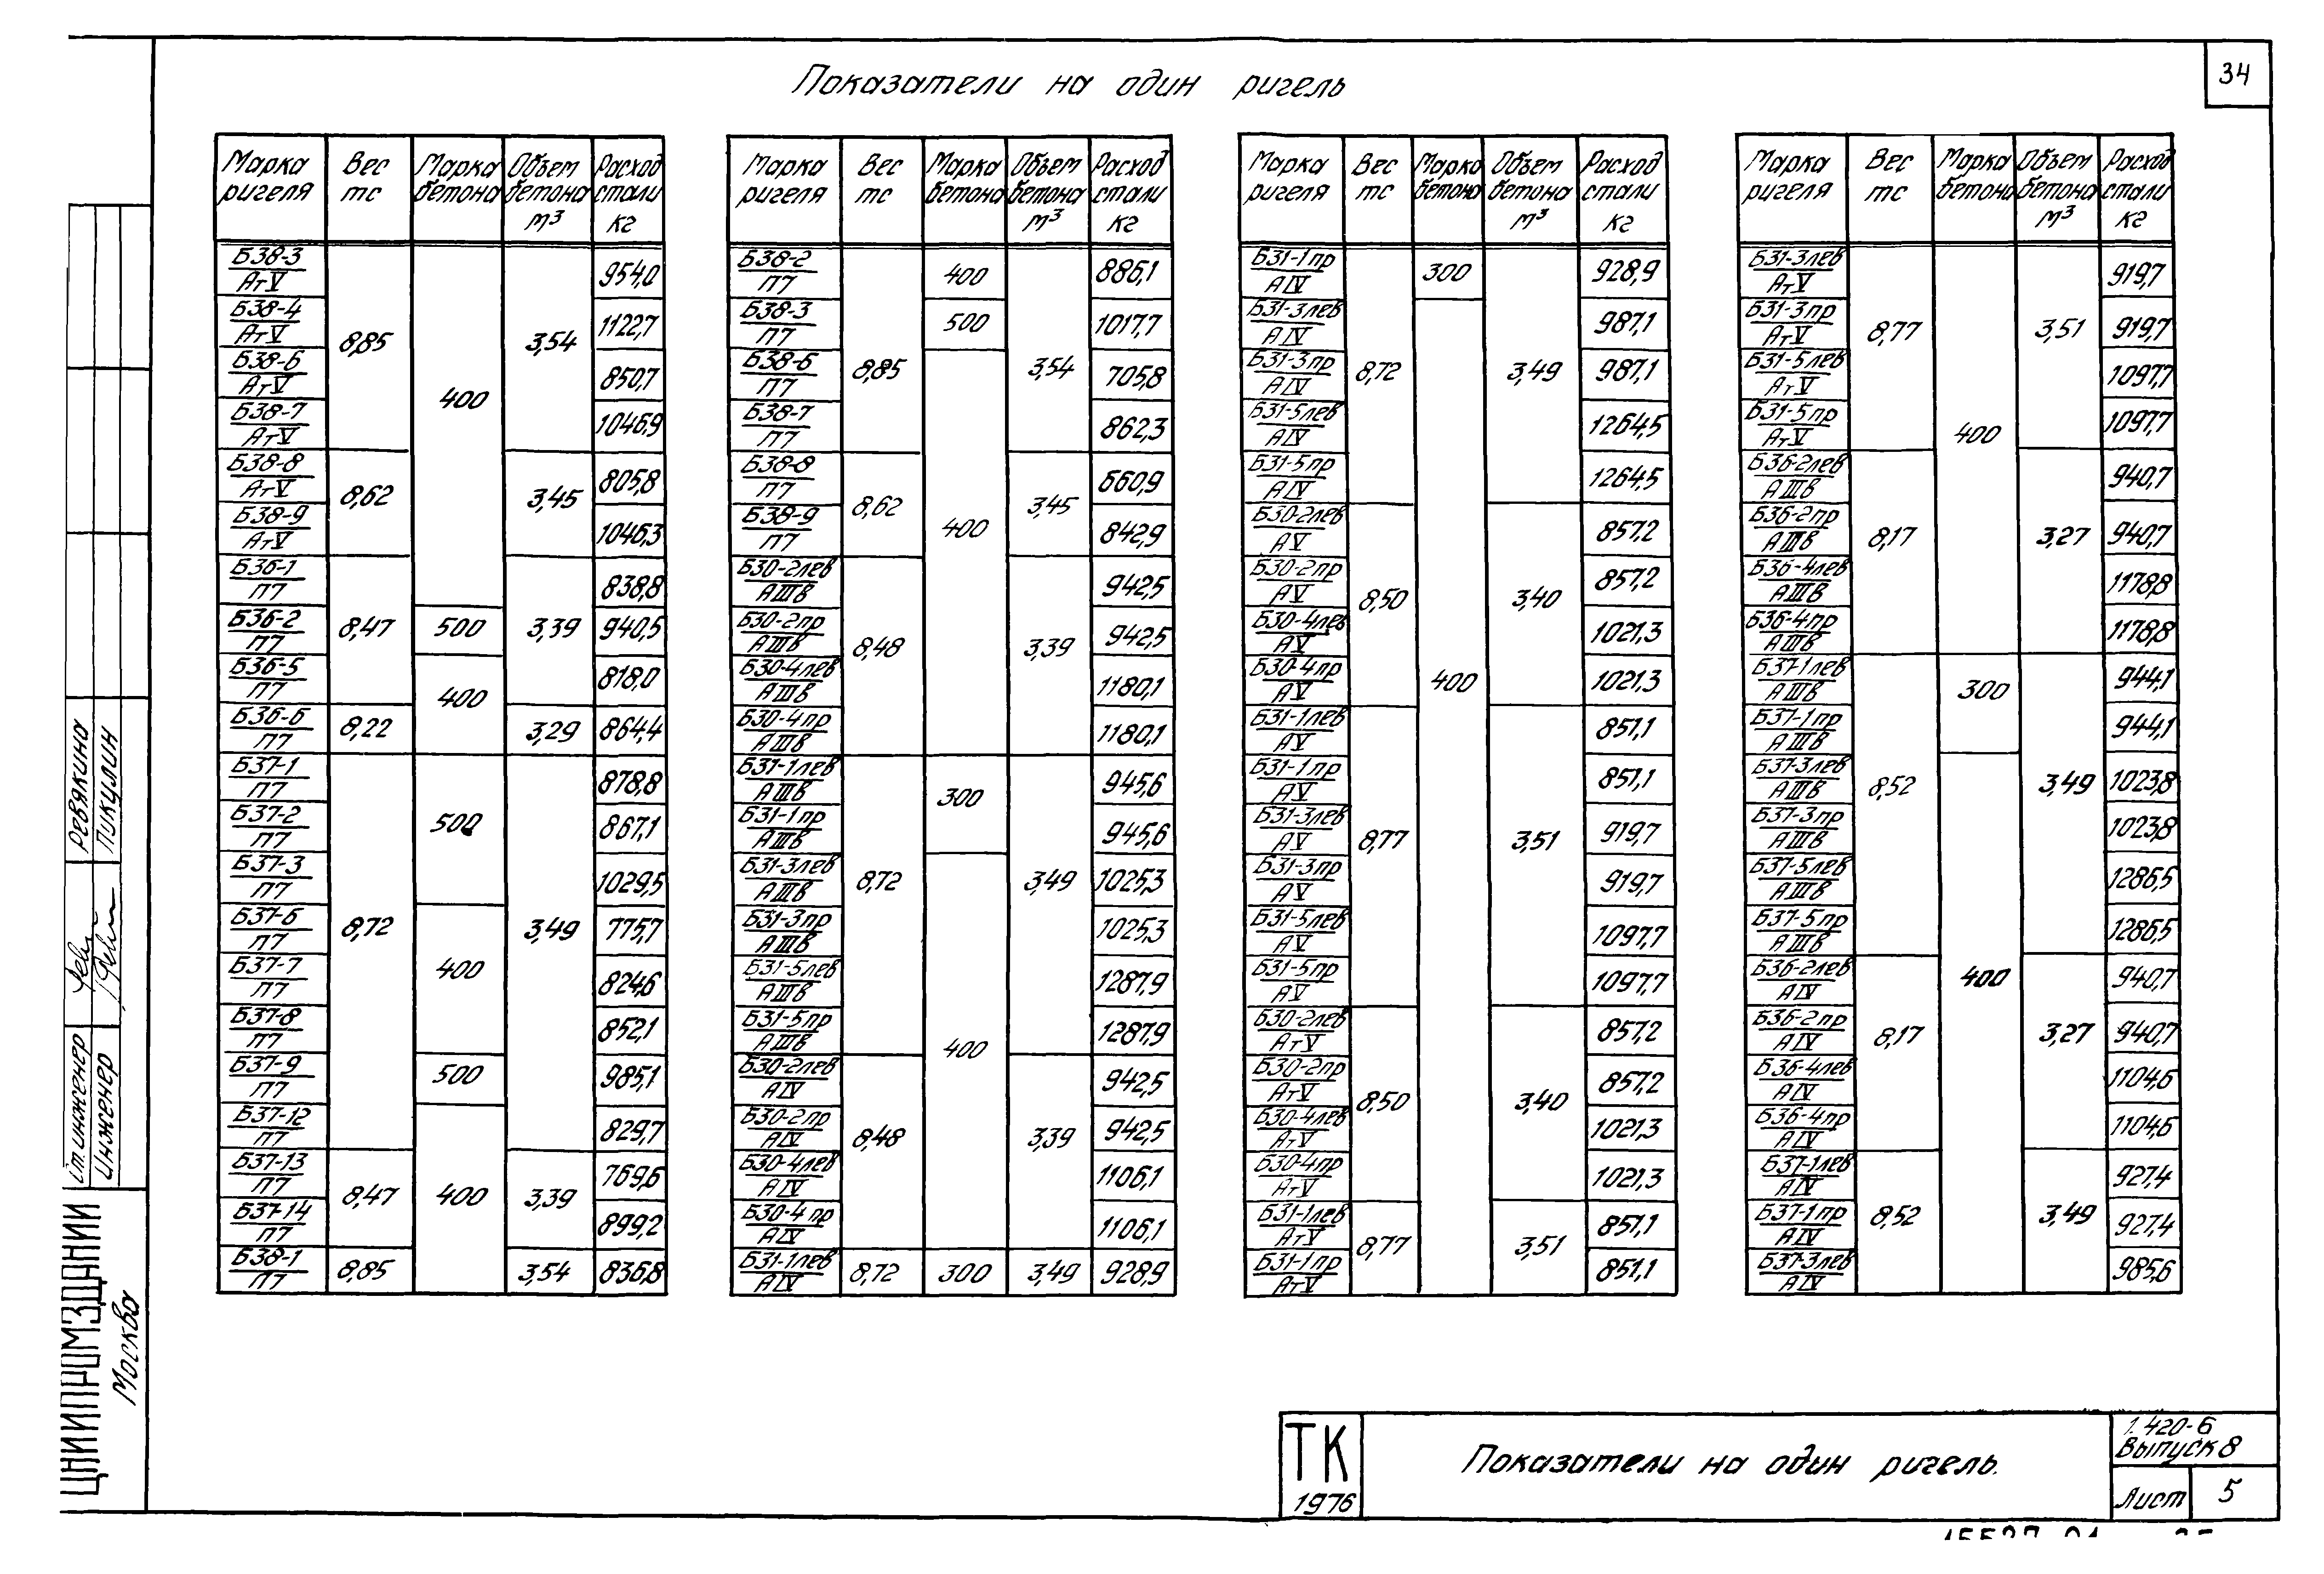 34
Показатели на один ригель
Марка ригеля | Вес тс | Марка бетона | Объем бетона м³ | Расход стали кг
Б38-3/АтV | 8,85 | 400 | 3,54 | 954,0
Б38-4/АтV | 1122,7
Б38-6/АтV | 850,7
Б38-7/АтV | 1046,9
Б38-8/АтV | 8,62 | 3,45 | 805,8
Б38-9/АтV | 1046,3
Б36-1/П7 | 8,47 | 3,39 | 838,8
Б36-2/П7 | 500 | 940,5
Б36-5/П7 | 400 | 818,0
Б36-6/П7 | 8,22 | 3,29 | 864,4
Б37-1/П7 | 8,72 | 500 | 3,49 | 878,8
Б37-2/П7 | 867,1
Б37-3/П7 | 1029,5
Б37-6/П7 | 400 | 775,7
Б37-7/П7 | 824,6
Б37-8/П7 | 852,1
Б37-9/П7 | 500 | 985,1
Б37-12/П7 | 400 | 829,7
Б37-13/П7 | 8,47 | 3,39 | 769,6
Б37-14/П7 | 899,2
Б38-1/П7 | 8,85 | 3,54 | 836,8
Марка ригеля | Вес тс | Марка бетона | Объем бетона м³ | Расход стали кг
Б38-2/П7 | 8,85 | 400 | 3,54 | 886,1
Б38-3/П7 | 500 | 1017,7
Б38-6/П7 | 400 | 705,8
Б38-7/П7 | 862,3
Б38-8/П7 | 8,62 | 3,45 | 660,9
Б38-9/П7 | 842,9
Б30-2лев/АIIIв | 8,48 | 3,39 | 942,5
Б30-2пр/АIIIв | 942,5
Б30-4лев/АIIIв | 1180,1
Б30-4пр/АIIIв | 1180,1
Б31-1лев/АIIIв | 8,72 | 300 | 3,49 | 945,6
Б31-1пр/АIIIв | 945,6
Б31-3лев/АIIIв | 400 | 1025,3
Б31-3пр/АIIIв | 1025,3
Б31-5лев/АIIIв | 1287,9
Б31-5пр/АIIIв | 1287,9
Б30-2лев/АIV | 8,48 | 3,39 | 942,5
Б30-2пр/АIV | 942,5
Б30-4лев/АIV | 1106,1
Б30-4пр/АIV | 1106,1
Б31-1лев/АIV | 8,72 | 300 | 3,49 | 928,9
Марка ригеля | Вес тс | Марка бетона | Объем бетона м³ | Расход стали кг
Б31-1пр/АIV | 8,72 | 300 | 3,49 | 928,9
Б31-3лев/АIV | 400 | 987,1
Б31-3пр/АIV | 987,1
Б31-5лев/АIV | 1264,5
Б31-5пр/АIV | 1264,5
Б30-2лев/АV | 8,50 | 3,40 | 857,2
Б30-2пр/АV | 857,2
Б30-4лев/АV | 1021,3
Б30-4пр/АV | 1021,3
Б31-1лев/АV | 8,77 | 3,51 | 851,1
Б31-1пр/АV | 851,1
Б31-3лев/АV | 919,7
Б31-3пр/АV | 919,7
Б31-5лев/АV | 1097,7
Б31-5пр/АV | 1097,7
Б30-2лев/АтV | 8,50 | 3,40 | 857,2
Б30-2пр/АтV | 857,2
Б30-4лев/АтV | 1021,3
Б30-4пр/АтV | 1021,3
Б31-1лев/АтV | 8,77 | 3,51 | 851,1
Б31-1пр/АтV | 851,1
Марка ригеля | Вес тс | Марка бетона | Объем бетона м³ | Расход стали кг
Б31-3лев/АтV | 8,77 | 400 | 3,51 | 919,7
Б31-3пр/АтV | 919,7
Б31-5лев/АтV | 1097,7
Б31-5пр/АтV | 1097,7
Б36-2лев/АIIIв | 8,17 | 3,27 | 940,7
Б36-2пр/АIIIв | 940,7
Б36-4лев/АIIIв | 1178,8
Б36-4пр/АIIIв | 1178,8
Б37-1лев/АIIIв | 8,52 | 300 | 3,49 | 944,1
Б37-1пр/АIIIв | 944,1
Б37-3лев/АIIIв | 400 | 1023,8
Б37-3пр/АIIIв | 1023,8
Б37-5лев/АIIIв | 1286,5
Б37-5пр/АIIIв | 1286,5
Б36-2лев/АIV | 8,17 | 3,27 | 940,7
Б36-2пр/АIV | 940,7
Б36-4лев/АIV | 1104,6
Б36-4пр/АIV | 1104,6
Б37-1лев/АIV | 8,52 | 3,49 | 927,4
Б37-1пр/АIV | 927,4
Б37-3лев/АIV | 985,6
Ст.инженер Ревякина
Инженер Пикулин
ЦНИИПРОМЗДАНИЙ
Москва
ТК
1976
Показатели на один ригель.
1.420-6
Выпуск 8
Лист 5